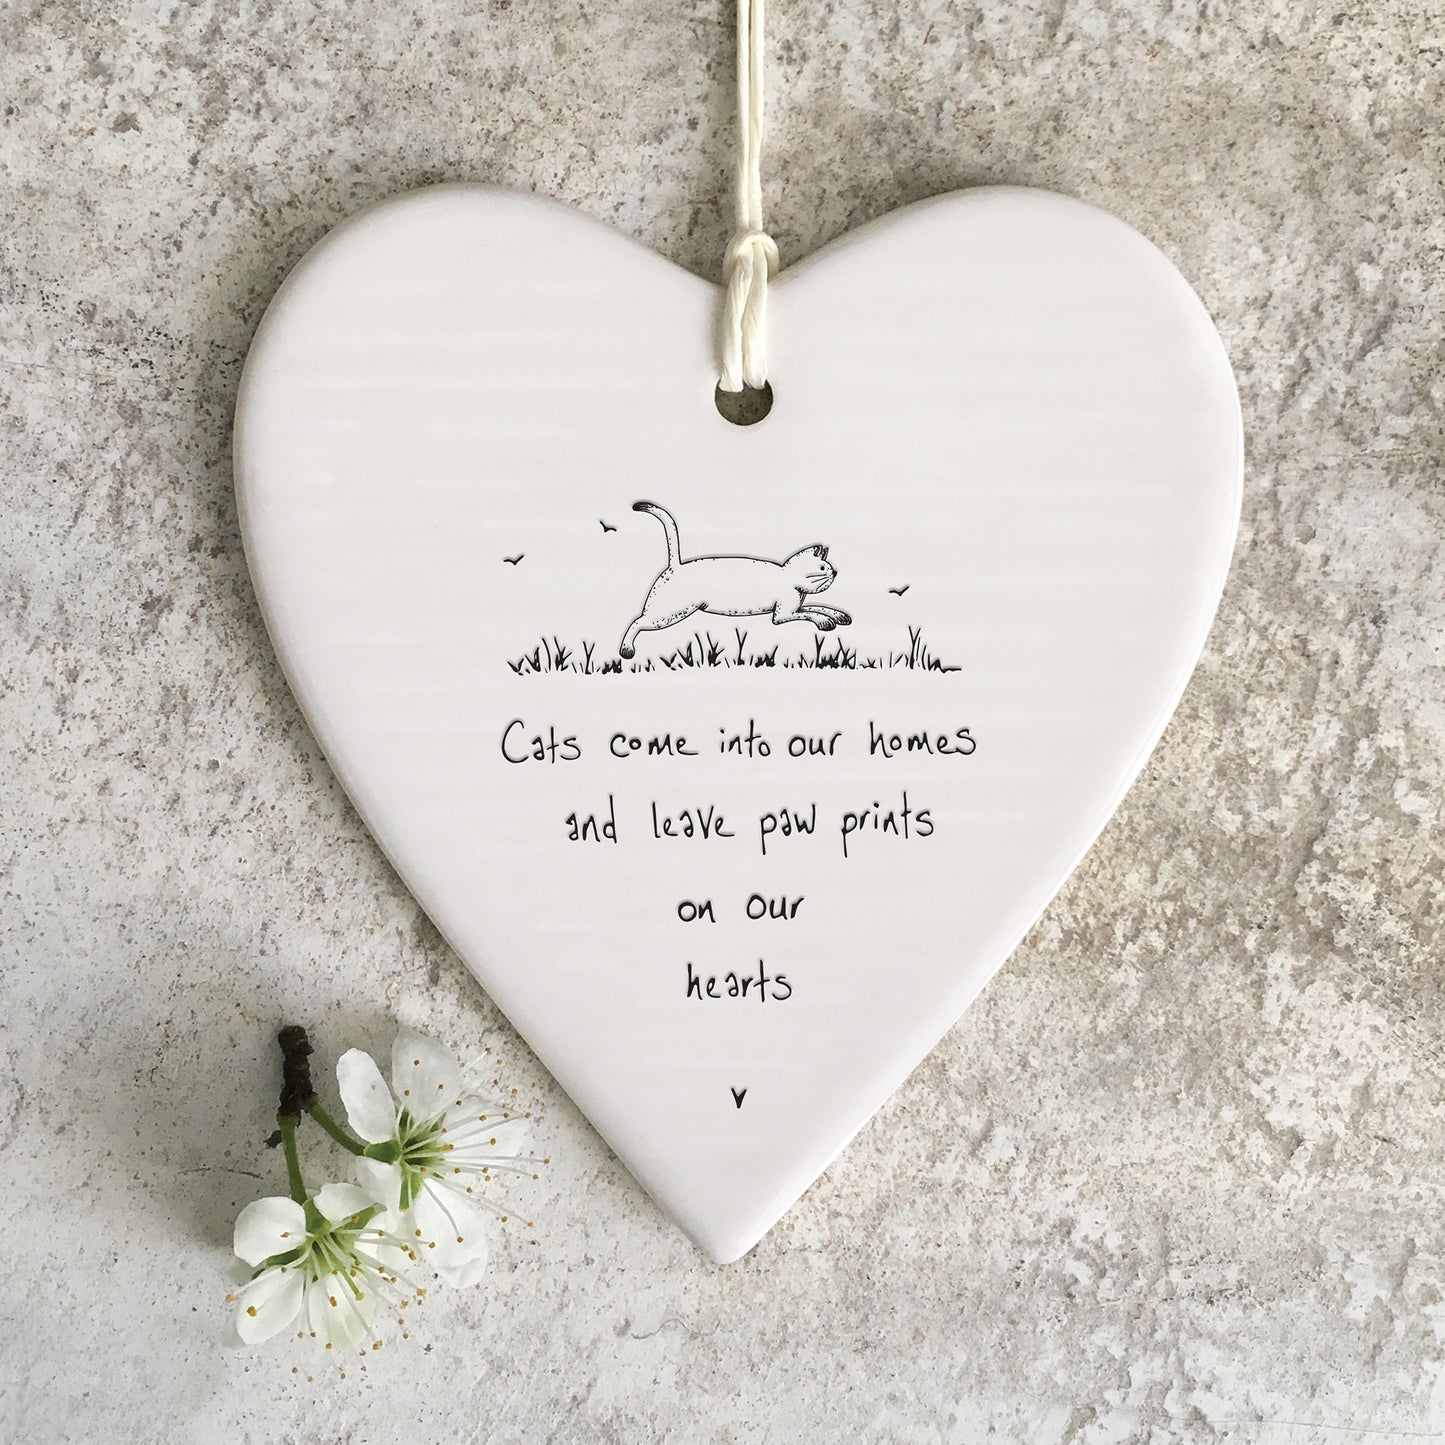 Cats come into our homes
and leave paw prints
on our
hearts